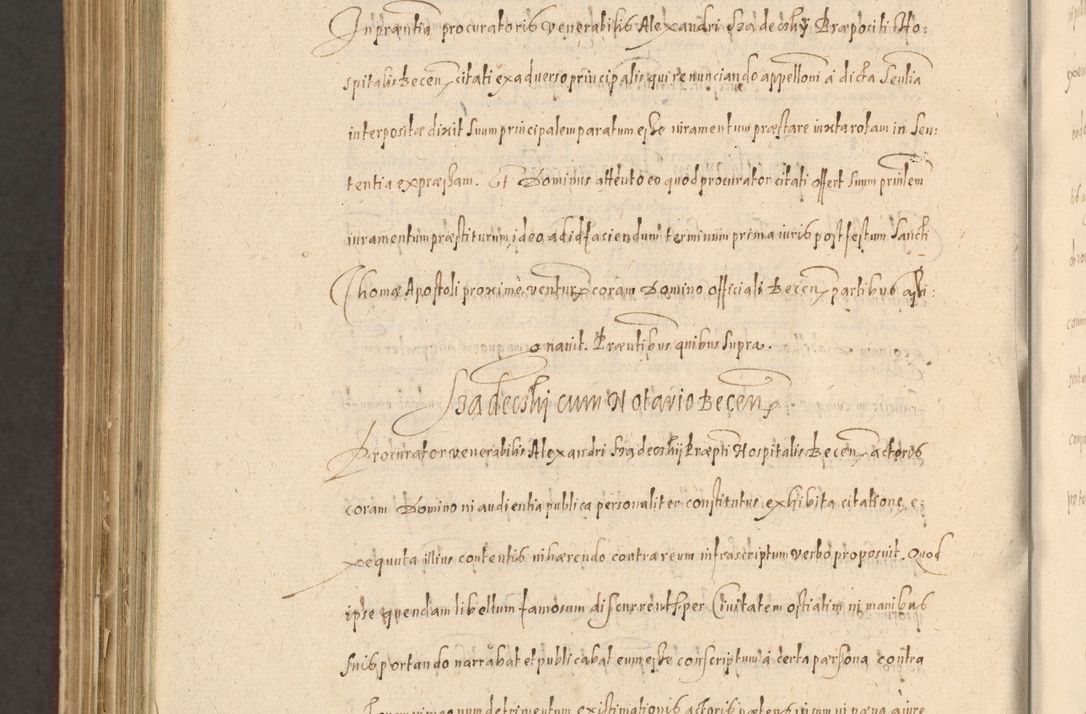 In præntia procuratoris venerabilis Alexandri Szadecshÿ Præpositi Ho:
spitalis Becen citati ex adverso principalis qui renunciando appellōni à dicta Sentia
interpositæ dixit Suum principalem paratum esse iuramentum præstare iuxta rotam in Sen:
tentia expræssam. Et Dominus attento eo quod procurator citati offert Suum prinlem
iuramentum præstiturum, ideo ad id faciendum terminum prima iuris post festum Sancti
Thomæ Apostoli proxime ventur coram Domino officiali Becen partibus assi:
onavit. Præntibus quibus Supra.
Szadecshi cum Notario Becen
Procurator venerabilis Alexandri Szadecshij Præpti Hospitalis Becen actoris
coram Domino in audientia publica personaliter constitutus, exhibita citatione e:
xequuta illius contentis inhærendo contra reum infrascriptum verbo proposuit. Quod
ipse quendam libellum famosum discurrent per Civitatem ostiatim in manibus
Suis portando narrabat et publicabat eum esse conscriptum à certa persona contra
num detrimentum existimationis actoris in pæna à iure